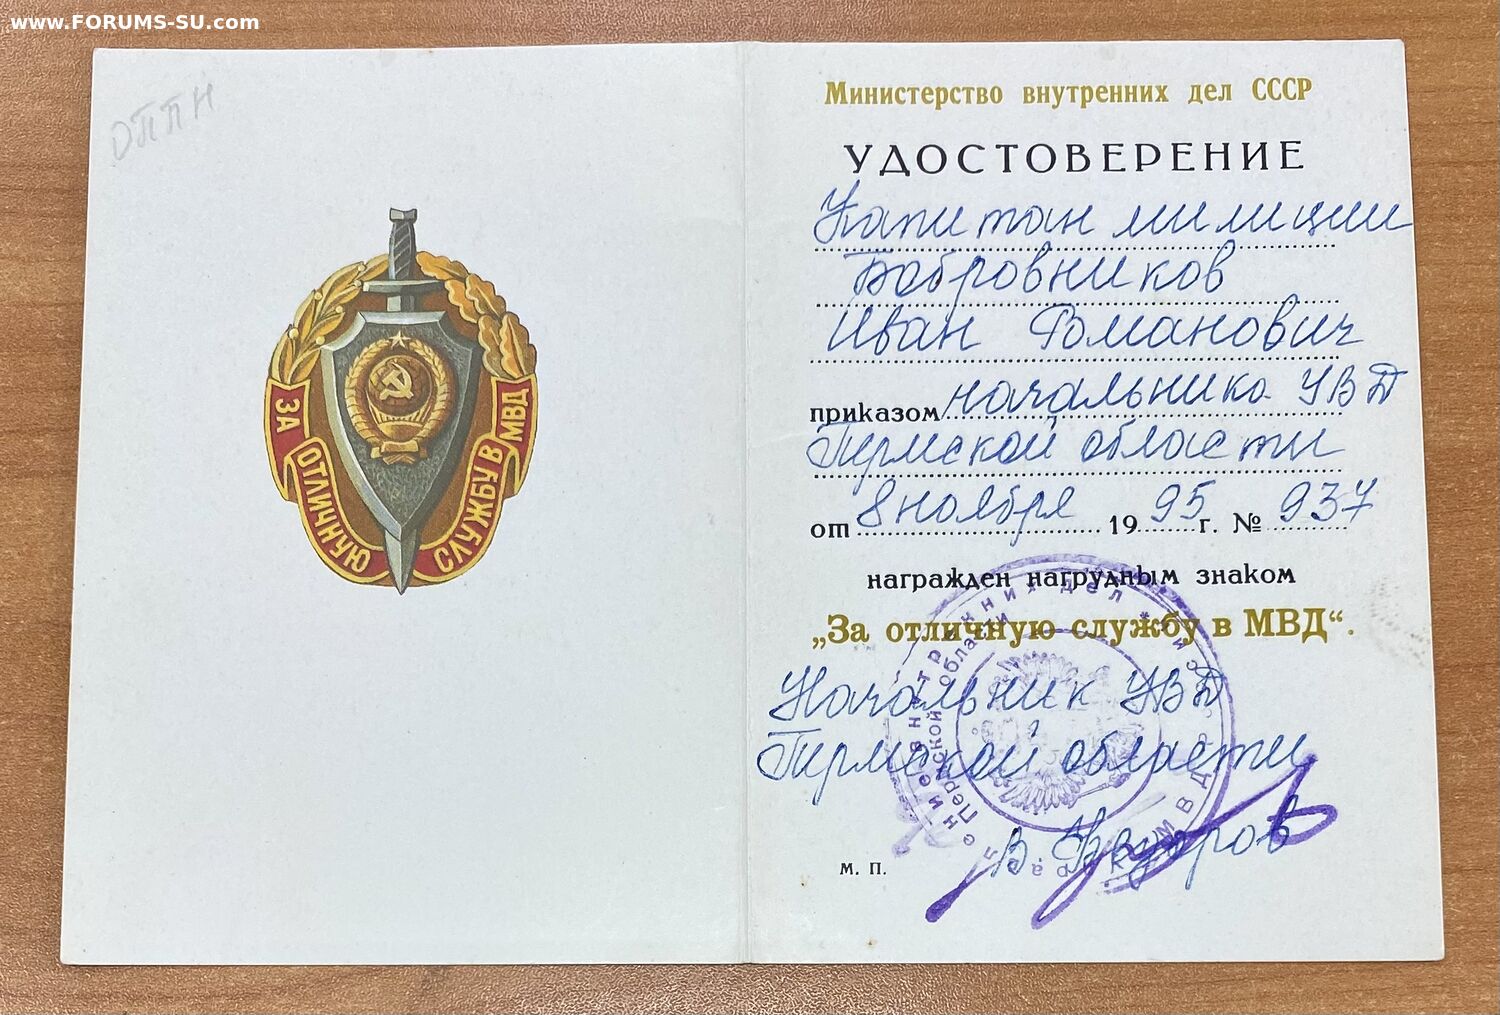 www.FORUMS-SU.com
ОППН
ЗА ОТЛИЧНУЮ СЛУЖБУ В МВД
Министерство внутренних дел СССР
УДОСТОВЕРЕНИЕ
Капитан милиции
Бобровников
Иван Романович
приказом начальника УВД
Пермской области
от 8 ноября 1995 г. № 937
награжден нагрудным знаком
„За отличную службу в МВД“.
Начальник УВД
Пермской области
В. Федоров
м. п.
внутренних дел
Пермской области
МВД